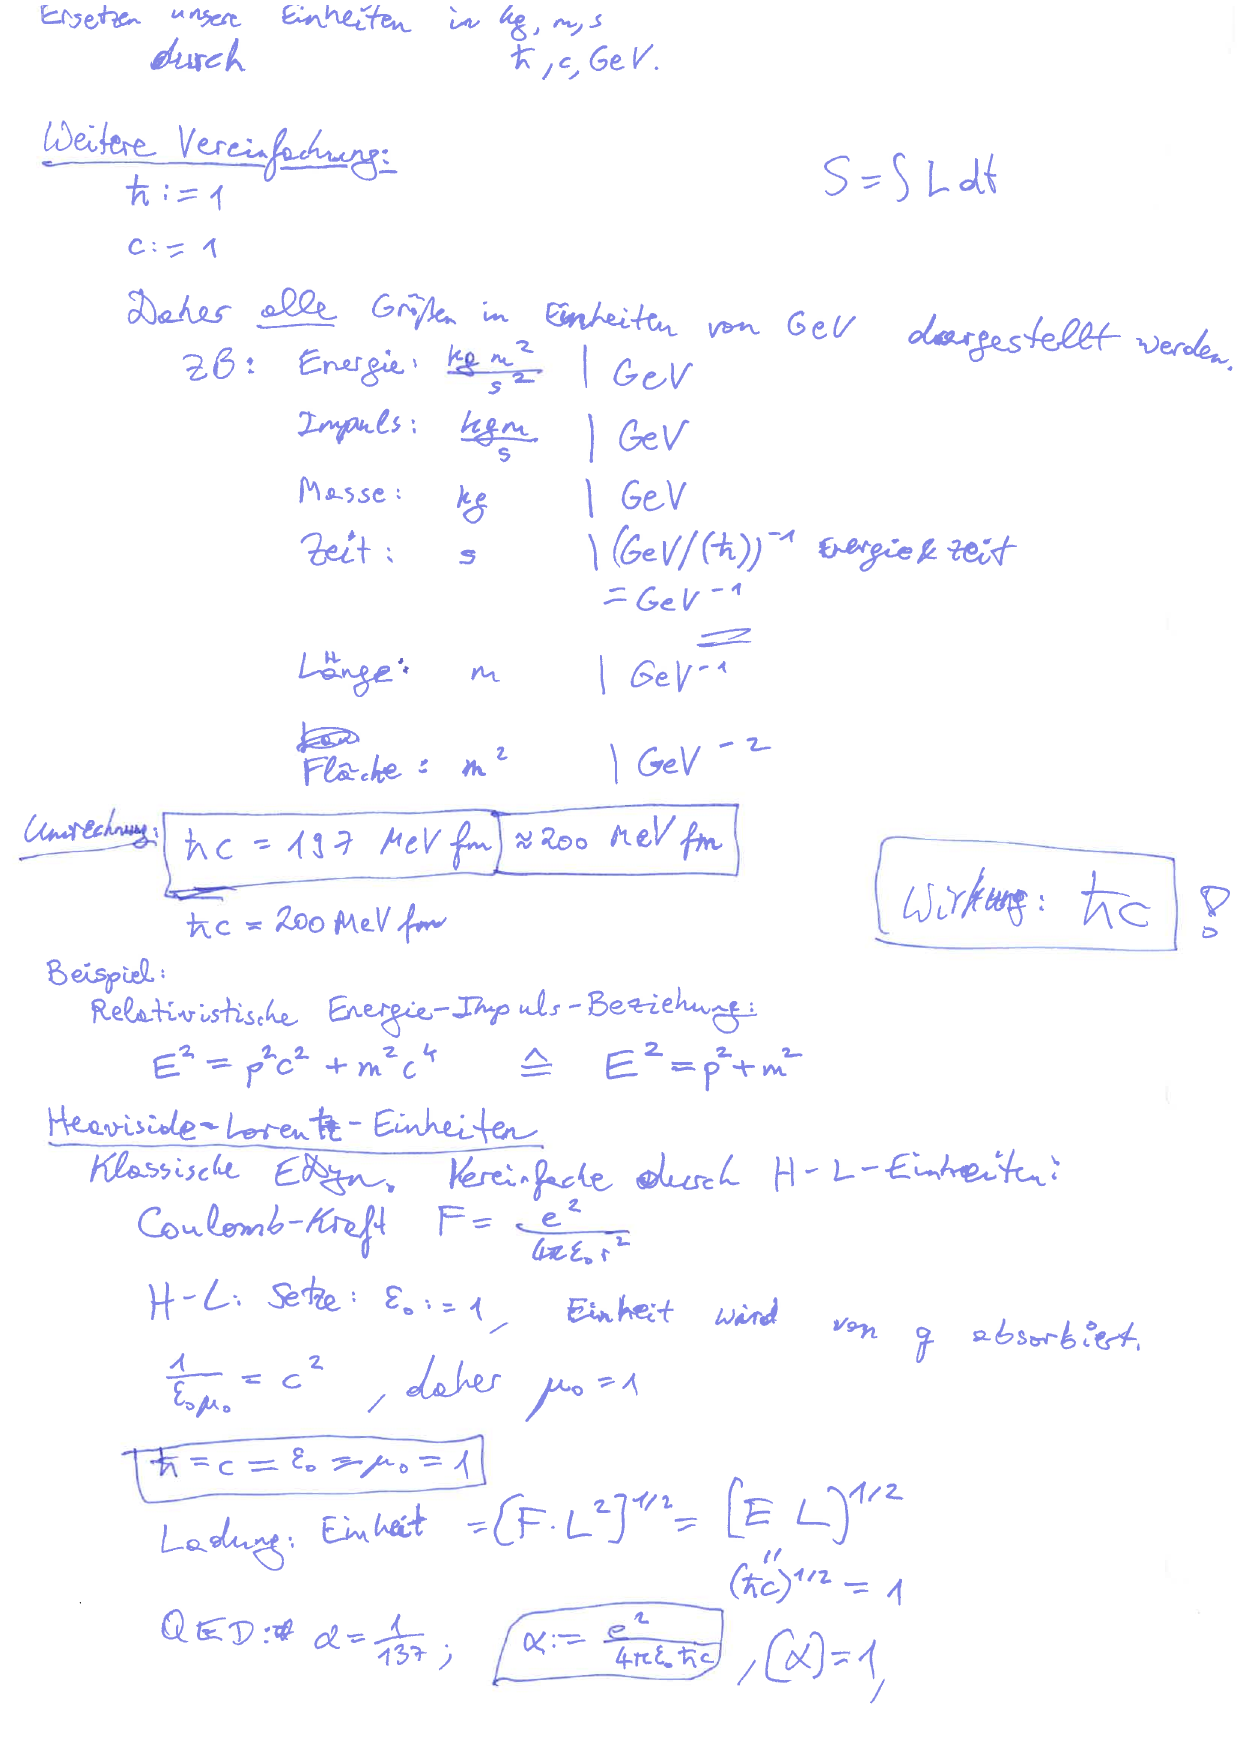 Ersetzen unsere Einheiten in kg, m, s
durch ħ, c, GeV.
Weitere Vereinfachung:
ħ := 1
S = ∫ L dt
c := 1
Daher alle Größen in Einheiten von GeV dargestellt werden.
zB: Energie: kg m²/s² | GeV
Impuls: kg m/s | GeV
Masse: kg | GeV
Zeit: s | (GeV/(ħ))⁻¹ Energie & Zeit
= GeV⁻¹
Länge: m | GeV⁻¹
Fläche: m² | GeV⁻²
Umrechnung: ħc = 197 MeV fm ≈ 200 MeV fm
Wirkung: ħc !
ħc = 200 MeV fm
Beispiel:
Relativistische Energie-Impuls-Beziehung:
E² = p²c² + m²c⁴ ≙ E² = p² + m²
Heaviside-Lorentz-Einheiten
Klassische EDyn. Vereinfache durch H-L-Einheiten:
Coulomb-Kraft F = e²/4πε₀r²
H-L: Setze: ε₀ := 1, Einheit wird von q absorbiert.
1/ε₀μ₀ = c², daher μ₀ = 1
ħ = c = ε₀ = μ₀ = 1
Ladung: Einheit = [F·L²]^1/2 = [E L]^1/2
(ħc)^1/2 = 1
QED: α = 1/137; α := e²/4πε₀ħc, [α] = 1,